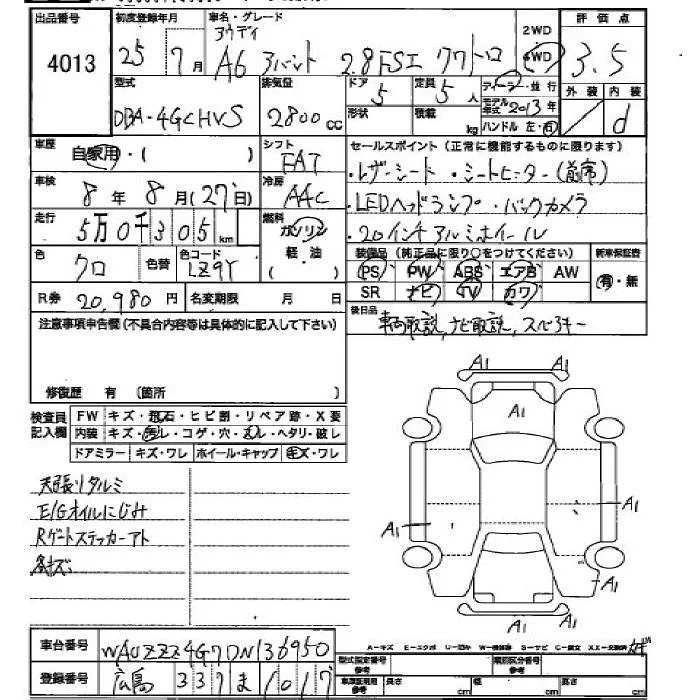 出品番号 初度登録年月 車名・グレード 2WD 評価点
4013 25年7月 アウディ A6 アバント 2.8FSI クワトロ 4WD 3.5
型式 排気量 ドア 定員 ディーラー・並行 外装 内装
DBA-4GCHVS 2800cc 5 5人 モデル年式 2013年 d
形状 積載 kg ハンドル 左・右
車歴 自家用・( ) シフト FAT セールスポイント(正常に機能するものに限ります)
車検 8年8月(27日) 冷房 AAC ・レザーシート ・シートヒーター(前席)
・LEDヘッドランプ ・バックカメラ
走行 5万0千305km 燃料 ガソリン 軽・油 ( ) ・20インチアルミホイール
色 クロ 色替 色コード LZ9Y 装備品(純正品に限り○をつけてください) 新車保証書
PS PW ABS エアB AW 有・無
R券 20,980円 名変期限 月 日 SR ナビ TV カワ
注意事項申告欄(不具合内容等は具体的に記入して下さい) 後日品 車両取説,ナビ取説,スペアキー
修復歴 有 (箇所 )
検査員記入欄 FW キズ・飛石・ヒビ割・リペア跡・X要
内装 キズ・汚レ・コゲ・穴・スレ・ヘタリ・破レ
ドアミラー キズ・ワレ ホイール・キャップ キズ・ワレ
天張リタルミ
E/Gオイルにじみ
Rゲートステッカーアト
A1 A1
A1
A1 A1
A1
A1 A1
車台番号 WAUZZZ4G7DN136950
登録番号 広島 337 ま 1017
A-キズ E-エクボ U-凹み W-補修跡 S-サビ C-腐食 XX-交換済
型式指定番号 参考 類別区分番号 参考
車庫証明用 参考 長さ cm 幅 cm 高さ cm